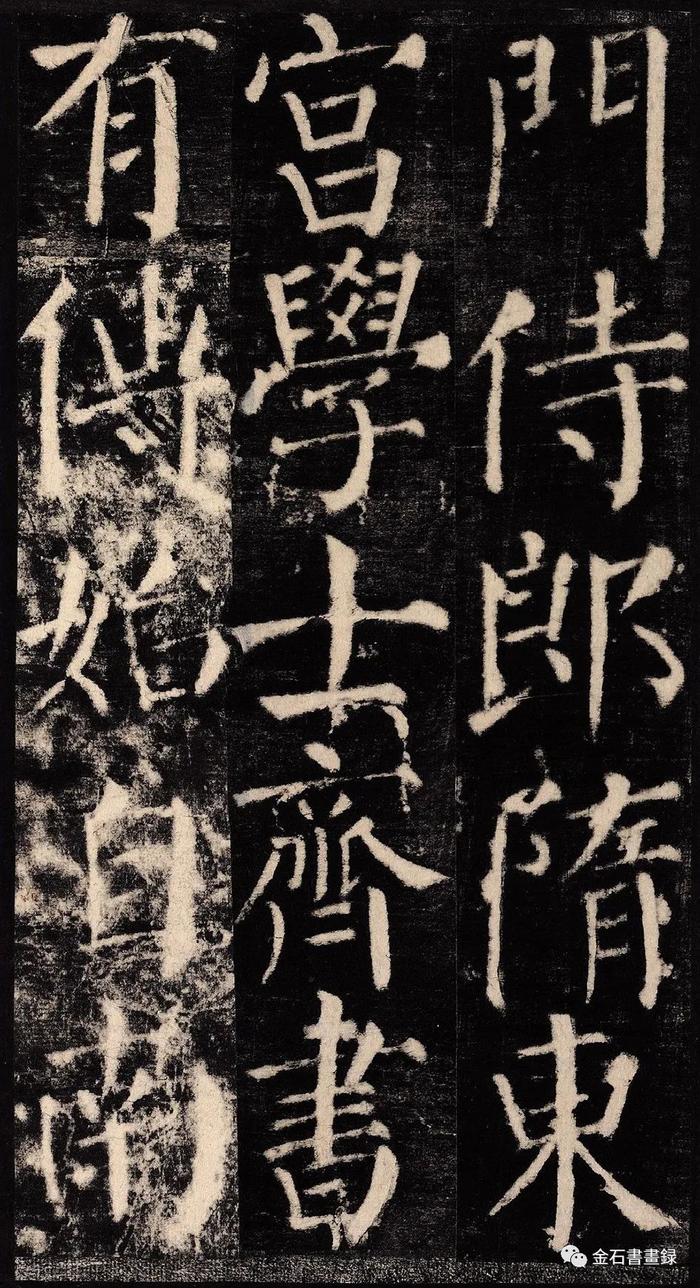 門侍郎隋東
宮學士齊書
有傳始自南
金石書畫録